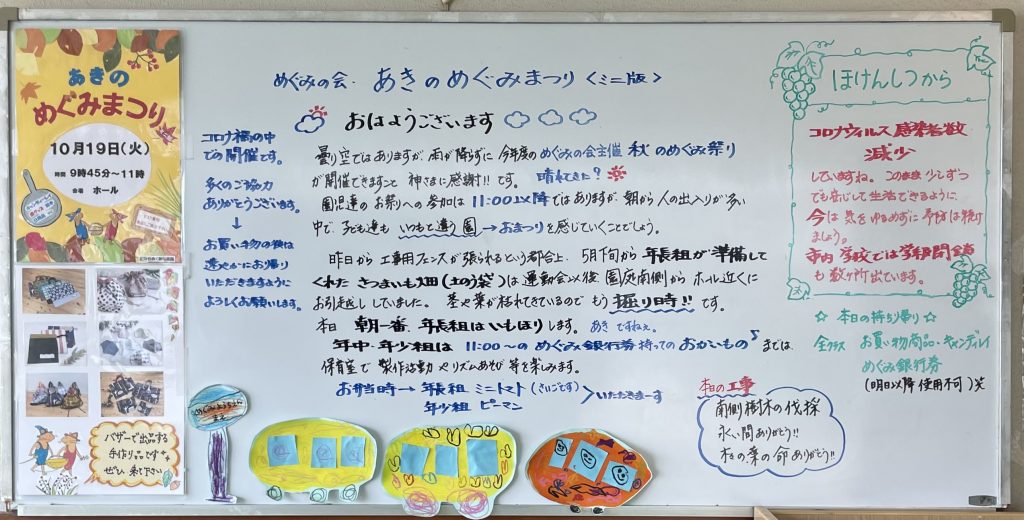 あきの
めぐみまつり
10月19日(火)
時間 9時45分〜11時
会場 ホール
バザーで出品する
手作り品です
ぜひ 来て下さい
コロナ禍の中
での開催です。
多くのご協力
ありがとうございます。
↓
お買い物の後は
速やかにお帰り
いただきますように
よろしくお願いします。
めぐみの会. あきのめぐみまつり <ミニ版>
おはようございます
曇り空ではありますが、雨が降らずに 今年度のめぐみの会主催 秋のめぐみ祭り
が開催できますこと 神さまに感謝!!です。 晴れてきた?
園児達のお祭りへの参加は 11:00以降ではありますが、朝から人の出入りが多い
中で、子ども達も いつもと違う園→おまつりを感じていくことでしょう。
昨日から工事用フェンスが張られるという都合上、5月下旬から年長組が準備して
くれたさつまいも畑(土のう袋)は運動会以後、園庭南側からホール近くに
お引越ししていました。 茎や葉が枯れてきているのでもう掘り時!!です。
本日 朝一番、年長組はいもほりします。 あきですねぇ。
年中・年少組は 11:00〜のめぐみ銀行券持ってのおかいもの♪までは、
保育室で製作活動やリズムあそび等を楽しみます。
お当番→年長組 ミニトマト(さいごです)
年少組 ピーマン
いただきまーす
めぐみようちえん
まえ
ほけんしつから
コロナウィルス感染者数
減少
していますね。このまま少しずつ
でも安心して生活できるように
今は気をゆるめずに予防は続け
ましょう。
市内学校では学級閉鎖
も数ヶ所出ています。
☆ 本日の持ち帰り ☆
全クラス お買い物商品・キャンディレイ
めぐみ銀行券
(明日以降使用不可)笑
本日の工事
南側樹木の伐採
永い間ありがとう!!
木々の葉の命ありがとう!!